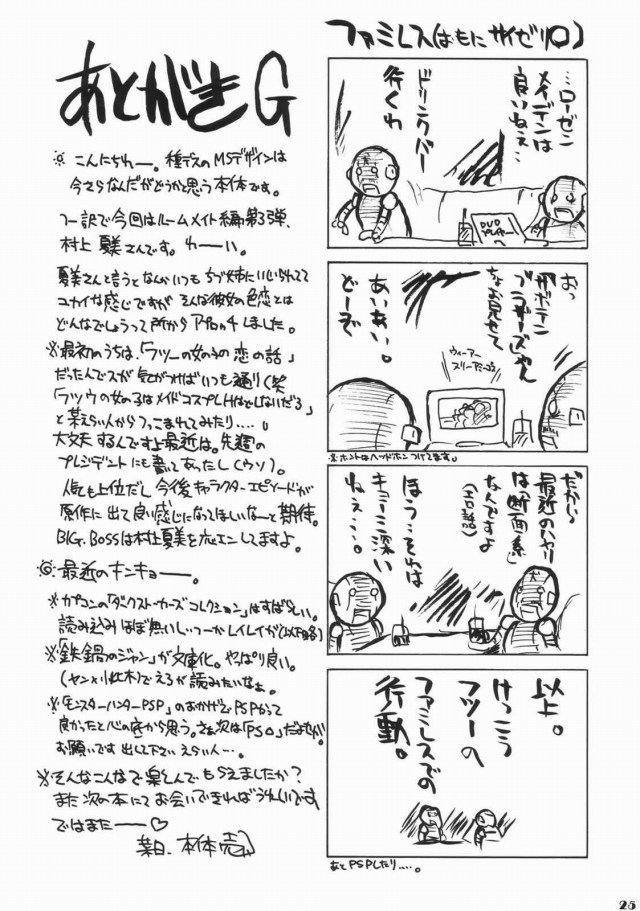 あとがきG
※ こんにちわー。種デスのMSデザインは
今さらなんだがどうかと思う本体です。
つー訳で今回はルームメイト編第3弾、
村上 夏美さんです。わーい。
夏美さんと言うとなんかいつもちづ姉にいじられてて
ユカイな感じですが そんな彼女の色恋とは
どんなでしょうって所から しました。
※最初のうちは、「フツーの女の子の恋の話」
だったんでスが 気がつけばいつも通り(笑
「フツウの女の子はメイドコスプレHはとしないだろ」
と某えらい人からつっこまれてみたり‥‥。
大丈夫 するんですよ最近は。先週の
プレジデントにも書いてあったし(ウソ)。
人気も上位だし 今後キャラクターエピソードが
原作に出て良い感じになってほしいなーと期待。
BIG.BOSSは村上夏美を応エンしてますよ。
◎最近のキンキョー。
※カプコンの「ダークストーカーズコレクション」はすばらしい。
読み込みほぼ無いしっつーかレイレイが(以下略)
※「鉄鍋のジャン」が文庫化。やっぱり良い。
(ヤン×小此木)でえろが読みたいなぁ。
※「モンスターハンターPSP」のおかげでPSPかって
良かったと心の底から思う。さぁ次は「PS○」だよせがい
お願いです出して下さいえらい人…。
※そんなこんなで楽しんでもらえましたか?
また次の本にてお会いできればうれしいです
ではまたーー♡
本体売
ファミレス(おもにサイゼリ○)
…ローゼン
メイデンは
良いねぇ…
ドリンクバー
行くわ
DVD
プレイヤー
おっ
「サボテン
ブラザーズ」やん
ちょお見せて
あいあい。
どーぞ
ウィーアー
スリーアミーゴス
※ホントはヘッドホンつけてます。
だから
最近のハヤリ
は「断面系」
なんですよ
(エロ話)
ほう…それは
キョーミ深い
ねぇ…。
以上。
けっこう
フツーの
ファミレスでの
行動。
あとPSPしたり‥‥。
25